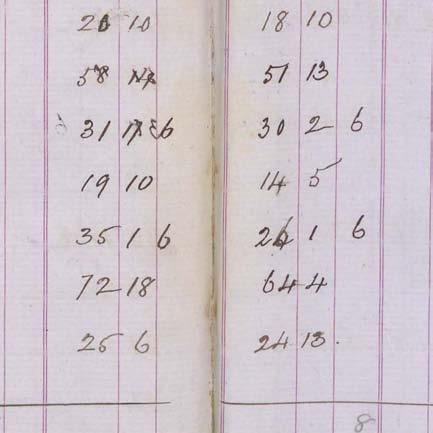 20 10 18 10
58 14 51 13
31 17 6 30 2 6
19 10 14 5
35 1 6 26 1 6
72 18 64 4
25 6 24 13.
8